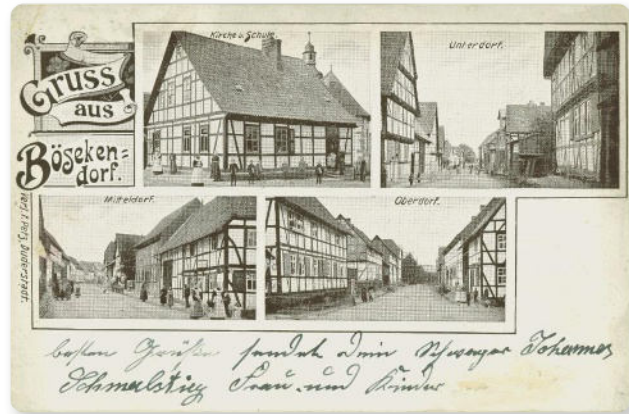 Gruss
aus
Böseken=
dorf.
Kirche u. Schule.
Unterdorf.
Mitteldorf.
Oberdorf.
Duderstadt.
besten Grüße sendet dein Schwager Johannes
Schmalstieg Frau und Kinder